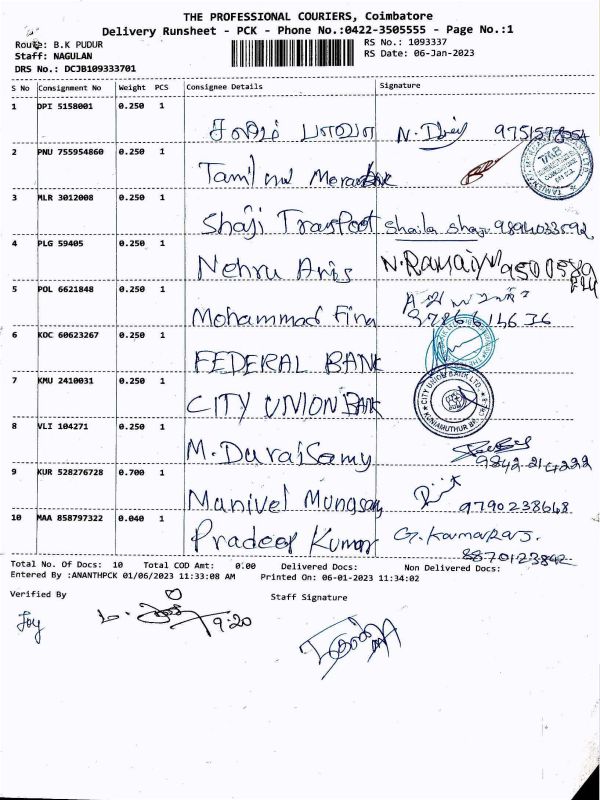 THE PROFESSIONAL COURIERS, Coimbatore
Delivery Runsheet - PCK - Phone No.:0422-3505555 - Page No.:1
Route: B.K PUDUR
RS No.: 1093337
Staff: NAGULAN
RS Date: 06-Jan-2023
DRS No.: DCJB109333701
S No Consignment No Weight PCS Consignee Details Signature
1 DPI 5158001 0.250 1
2 PNU 755954860 0.250 1 Tamil
3 MLR 3012008 0.250 1 Shaji Transfoot shaila shaji 9894033592
4 PLG 59405 0.250 1 Nehru Arts N.Ramaiya
5 POL 6621848 0.250 1 Mohammad Fing
6 KOC 60623267 0.250 1 FEDERAL BANK
7 KMU 2410031 0.250 1 CITY UNION BANK CITY UNION BANK LTD. KUNIAMUTHUR
8 VLI 104271 0.250 1 M.Duraisamy
9 KUR 528276728 0.700 1 Manivel 9790238648
10 MAA 858797322 0.040 1 Pradeep Kumar G. Kamaraj. 8870123842
Total No. Of Docs: 10 Total COD Amt: 0.00 Delivered Docs: Non Delivered Docs:
Entered By :ANANTHPCK 01/06/2023 11:33:08 AM Printed On: 06-01-2023 11:34:02
Verified By
Staff Signature
Joy
9:20